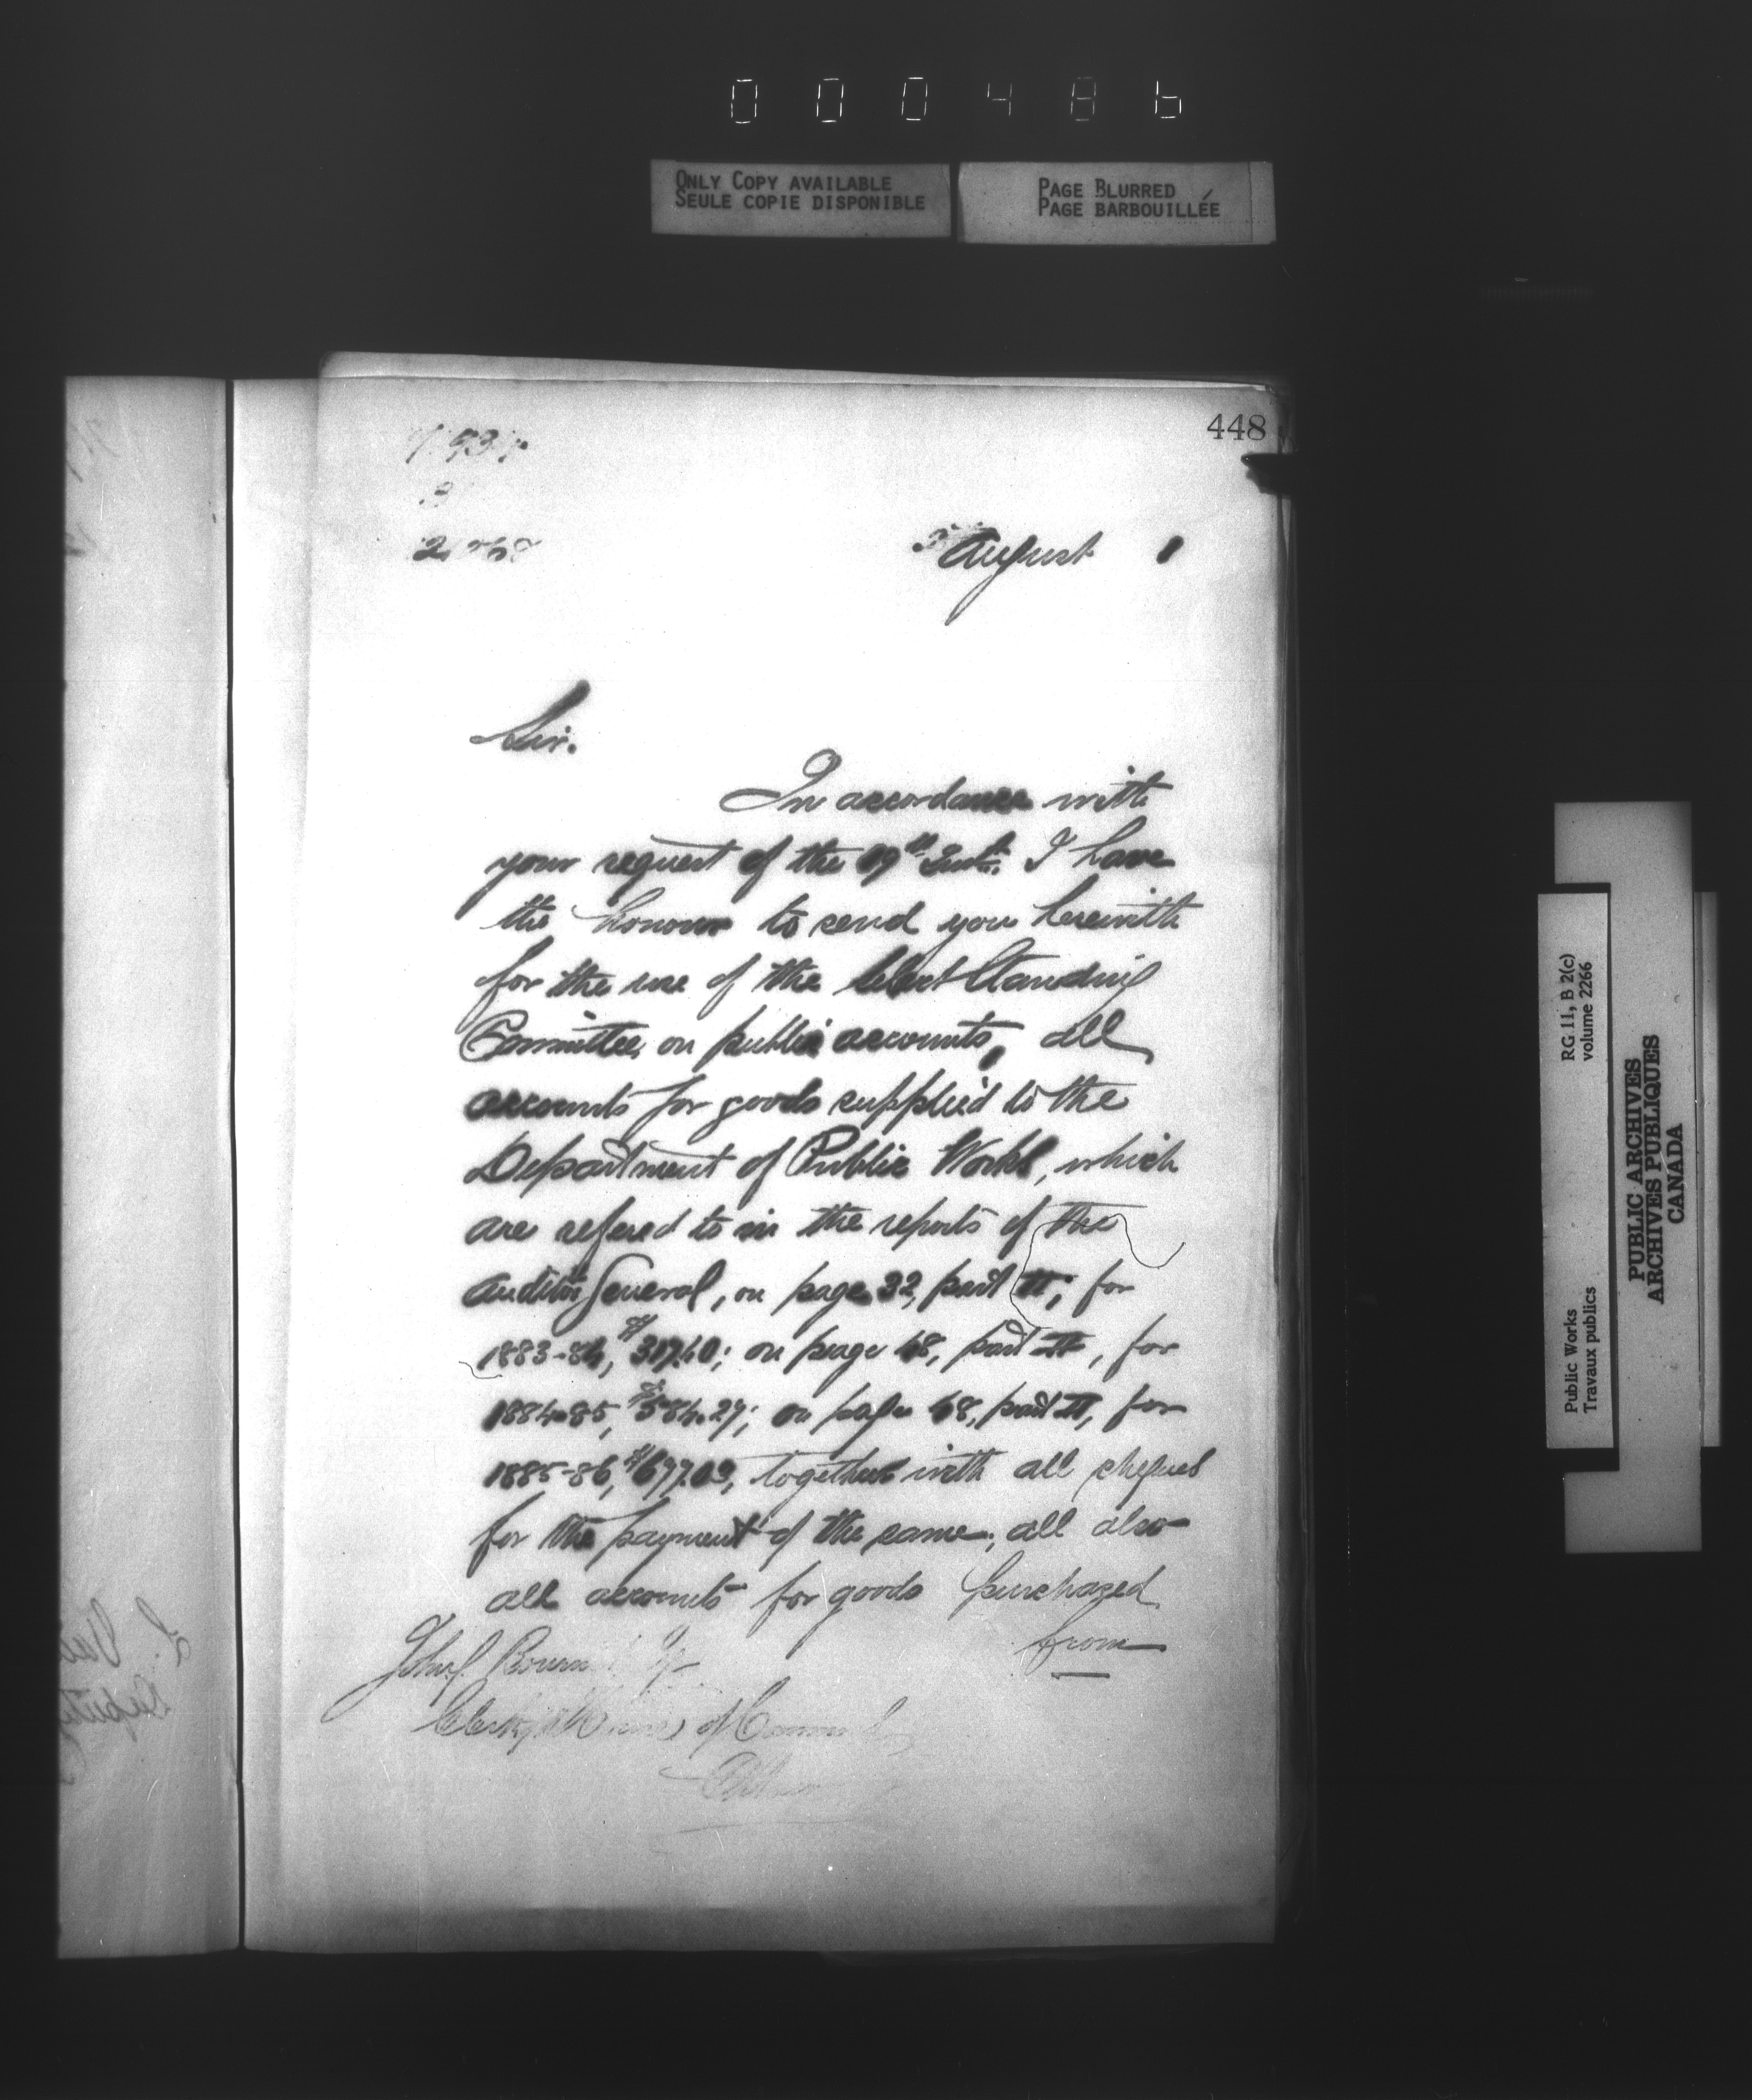 000486
ONLY COPY AVAILABLE
SEULE COPIE DISPONIBLE
PAGE BLURRED
PAGE BARBOUILLÉE
448
August
Sir.
In accordance with
your request of the 19th Inst. I have
the honour to send you herewith
for the use of the Select Standing
Committee on public accounts, all
accounts for goods supplied to the
Department of Public Works, which
are refered to in the reports of the
Auditor General, on page 32, part II; for
1883-84, $317.40; on page 48, part II, for
1884-85, $584.27; on page 48, part II, for
1885-86, $677.03, together with all cheques
for the payment of the same; all also
all accounts for goods purchased
from
John
Clerk of House of Commons
RG 11, B 2(c)
volume 2266
Public Works
Travaux publics
PUBLIC ARCHIVES
ARCHIVES PUBLIQUES
CANADA